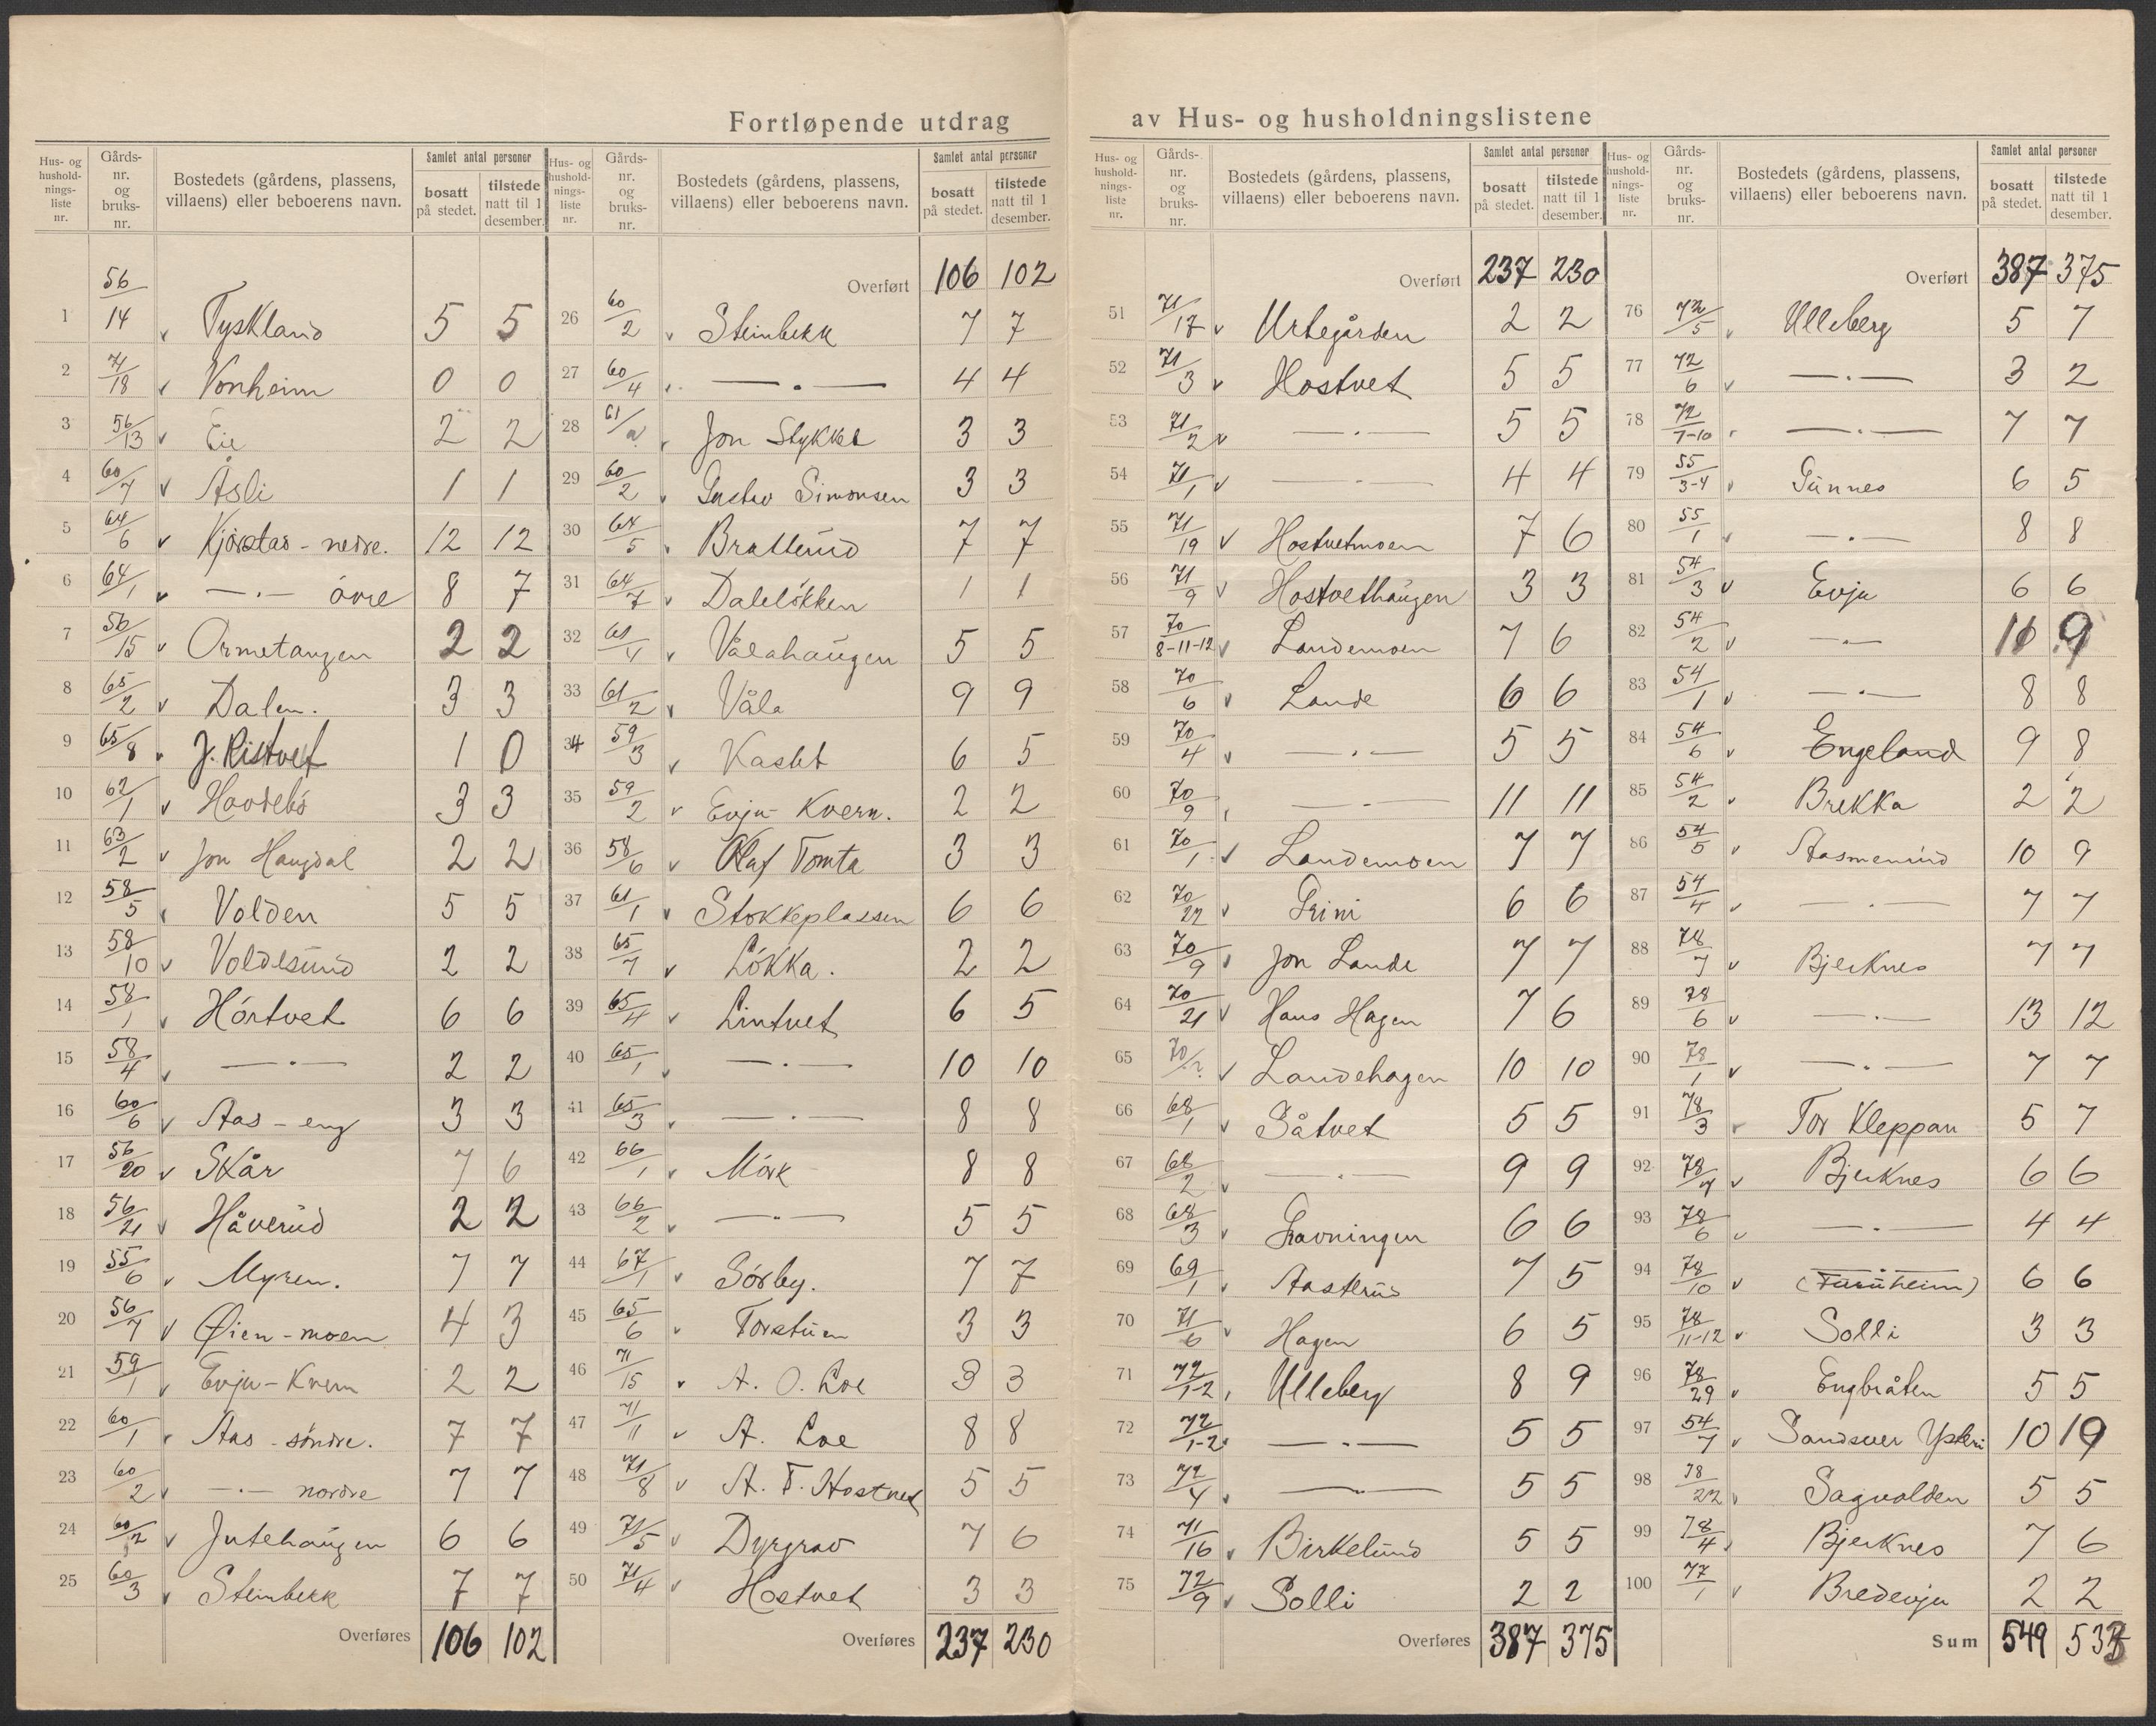 Fortløpende utdrag av Hus- og husholdningslistene
Hus- og husholdnings-liste nr. | Gårds-nr. og bruks-nr. | Bostedets (gårdens, plassens, villaens) eller beboerens navn. | Samlet antal personer bosatt på stedet. | tilstede natt til 1 desember.
1 56/14 v Tyskland 5 5
2 71/18 v Vonheim 0 0
3 56/13 v Eie 2 2
4 60/7 v Åsli 1 1
5 64/6 v Kjørstad - nedre. 12 12
6 64/1 v —·— övre 8 7
7 56/15 v Ormetangen 2 2
8 65/2 v Dalen. 3 3
9 65/8 v J. Ristvet 1 0
10 62/1 v Hovdebö 3 3
11 63/2 v Jon Haugdal 2 2
12 58/5 v Volden 5 5
13 58/10 v Voldesund 2 2
14 58/1 v Hörtvet 6 6
15 58/4 v —·— 2 2
16 60/6 v Aas - eng 3 3
17 56/20 v Skår 7 6
18 56/21 v Håverud 2 2
19 55/6 v Myren. 7 7
20 56/7 v Øien - moen 4 3
21 59/1 v Evju - Kvern 2 2
22 60/1 v Aas - söndre. 7 7
23 60/2 v —·— nordre 7 7
24 60/2 v Jutehaugen 6 6
25 60/3 v Steinbekk 7 7
Overføres 106 102
Hus- og husholdnings-liste nr. | Gårds-nr. og bruks-nr. | Bostedets (gårdens, plassens, villaens) eller beboerens navn. | Samlet antal personer bosatt på stedet. | tilstede natt til 1 desember.
Overført 106 102
26 60/2 v Steinbekk 7 7
27 60/4 v —·— 4 4
28 61/ v Jon Stykket 3 3
29 60/2 v Gustav Simonsen 3 3
30 64/5 v Bratterud 7 7
31 64/7 v Dalelökken 1 1
32 61/4 v Vålahaugen 5 5
33 61/2 v Våla 9 9
34 59/3 v Kastet 6 5
35 59/2 v Evju - Kvern. 2 2
36 58/6 v Olaf Tomta 3 3
37 61/1 v Stokkeplassen 6 6
38 65/7 v Lökka. 2 2
39 65/4 v Lintvet 6 5
40 65/1 v —·— 10 10
41 65/3 v —·— 8 8
42 66/1 v Mörk 8 8
43 66/2 v —·— 5 5
44 67/1 v Sörby. 7 7
45 65/6 v Torstuen 3 3
46 71/15 v A. O. Loe 3 3
47 71/11 v A. Loe 8 8
48 71/8 v A. T. Hostvet 5 5
49 71/5 v Dyrgrav 7 6
50 71/4 v Hostvet 3 3
Overføres 237 230
Hus- og husholdnings-liste nr. | Gårds-nr. og bruks-nr. | Bostedets (gårdens, plassens, villaens) eller beboerens navn. | Samlet antal personer bosatt på stedet. | tilstede natt til 1 desember.
Overført 237 230
51 71/17 v Urtegården 2 2
52 71/3 v Hostvet 5 5
53 71/2 v —·— 5 5
54 71/1 v —·— 4 4
55 71/19 v Hostvetmoen 7 6
56 71/9 v Hostvethaugen 3 3
57 70/8-11-12 v Landemoen 7 6
58 70/6 v Lande 6 6
59 70/4 v —·— 5 5
60 70/9 —·— 11 11
61 70/1 v Landemoen 7 7
62 70/22 v Grini 6 6
63 70/9 v Jon Lande 7 7
64 70/21 v Hans Hagen 7 6
65 70/?. v Landehagen 10 10
66 68/1 v Såtvet 5 5
67 68/2 v —·— 9 9
68 68/3 v Gravningen 6 6
69 69/1 v Aasterud 7 5
70 71/6 v Hagen 6 5
71 72/1-2 v Ulleberg 8 9
72 72/1-2 v —·— 5 5
73 72/4 v —·— 5 5
74 71/16 v Birkelund 5 5
75 72/9 v Solli 2 2
Overføres 387 375
Hus- og husholdnings-liste nr. | Gårds-nr. og bruks-nr. | Bostedets (gårdens, plassens, villaens) eller beboerens navn. | Samlet antal personer bosatt på stedet. | tilstede natt til 1 desember.
Overført 387 375
76 72/5 v Ulleberg 5 7
77 72/6 v —·— 3 2
78 72/7-10 v —·— 7 7
79 55/3-4 v Gunnes 6 5
80 55/1 v —·— 8 8
81 54/3 v Evju 6 6
82 54/2 v —·— 10 9
83 54/1 v —·— 8 8
84 54/6 v Engeland 9 8
85 54/2 v Brekka 2 2
86 54/5 v Aasmenrud 10 9
87 54/4 v —·— 7 7
88 78/7 v Bjerknes 7 7
89 78/6 v —·— 13 12
90 78/1 v —·— 7 7
91 78/3 v Tor Kleppan 5 7
92 78/7 v Bjerknes 6 6
93 78/6 v —·— 4 4
94 78/10 v —·— (Furuheim) 6 6
95 78/11-12 v Solli 3 3
96 78/29 v Engbråten 5 5
97 54/7 v Sandsver Ysteri 10 19
98 78/22 v Sagvolden 5 5
99 78/4 v Bjerknes 7 6
100 77/1 v Bredevju 2 2
Sum 549 533